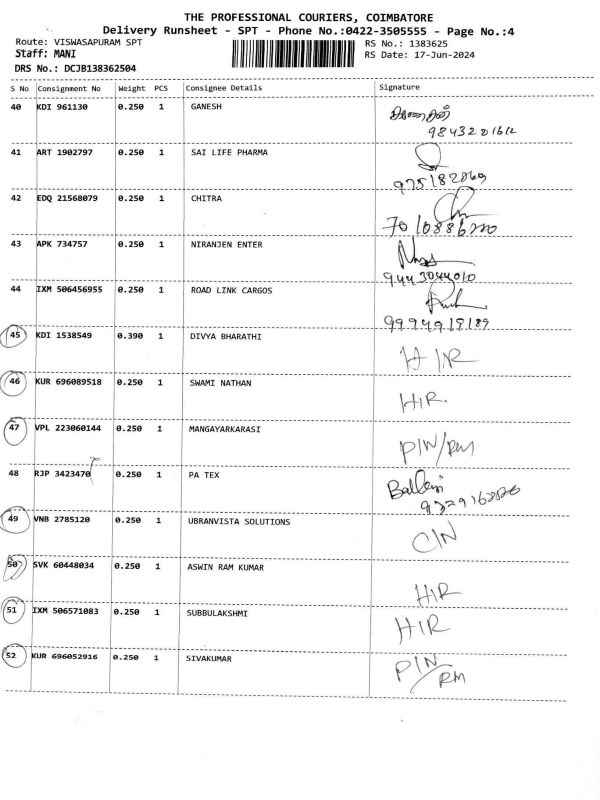 THE PROFESSIONAL COURIERS, COIMBATORE
Delivery Runsheet - SPT - Phone No.:0422-3505555 - Page No.:4
Route: VISWASAPURAM SPT RS No.: 1383625
Staff: MANI RS Date: 17-Jun-2024
DRS No.: DCJB138362504
S No Consignment No Weight PCS Consignee Details Signature
40 KDI 961130 0.250 1 GANESH
41 ART 1902797 0.250 1 SAI LIFE PHARMA
42 EDQ 21568079 0.250 1 CHITRA
43 APK 734757 0.250 1 NIRANJEN ENTER
9443044010
44 IXM 506456955 0.250 1 ROAD LINK CARGOS
45 KDI 1538549 0.390 1 DIVYA BHARATHI H/R
46 KUR 696089518 0.250 1 SWAMI NATHAN H/R
47 VPL 223060144 0.250 1 MANGAYARKARASI PIN/RM
48 RJP 3423470 0.250 1 PA TEX
49 VNB 2785120 0.250 1 UBRANVISTA SOLUTIONS C/N
50 SVK 60448034 0.250 1 ASWIN RAM KUMAR H/R
51 IXM 506571083 0.250 1 SUBBULAKSHMI H/R
52 KUR 696052916 0.250 1 SIVAKUMAR PIN/RM